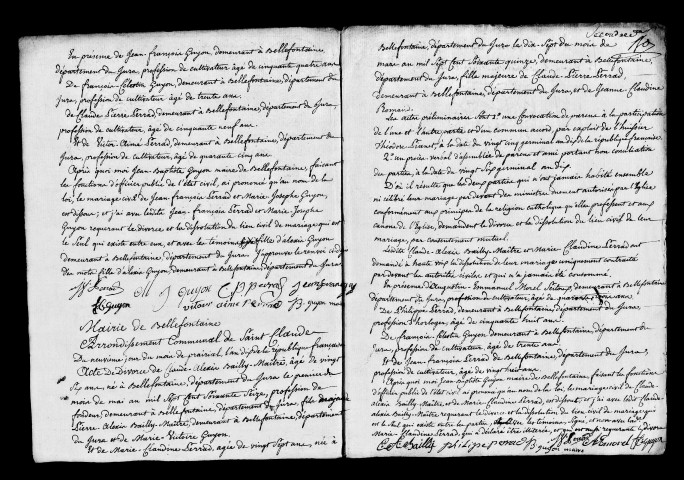 En présence de Jean-François Guyon, demeurant à Bellefontaine,
département du Jura, profession de cultivateur, âgé de cinquante quatre ans
De François Célestin Guyon, demeurant à Bellefontaine, département du
Jura, profession de cultivateur âgé de trente ans.
de Claude Pierre Perrad, demeurant à Bellefontaine, département du Jura,
profession de cultivateur, âgé de cinquante neuf ans
Et de Victor Aimé Perrad, demeurant à Bellefontaine, département du
Jura, profession de cultivateur, âgé de quarante cinq ans.
Après quoi moi Jean-Baptiste Guyon maire de Bellefontaine, faisant
les fonctions d'officier public de l'état civil, ai prononcé qu'au nom de la
loi, le mariage civil de Jean François Perrad et Marie Josephe Guyon,
est dissous; et j'ai avec lesdits Jean-François Perrad et Marie Josephe
Guyon requérant le divorce et la dissolution du lien civil de mariage qui est
le seul qui existe entre eux, et avec les témoins filles d'alexis Guyon
demeurant à Bellefontaine, département du Jura. J'approuve le renvoi ci-dessus
du mot fille d'alexis Guyon, demeurant à Bellefontaine département du Jura
Guyon
Guyon victor aimé Perrad B. guyon maire
Mairie de Bellefontaine
Arrondissement Communal de Saint Claude
Du neuvième jour du mois de prairial, l'an dix de la république française
Acte de Divorce de Claude Alexis Bailly-Maître, âgé de vingt
six ans, né à Bellefontaine, département du Jura le premier du
mois de mai an mil sept cent soixante seize, profession de
fondeur, demeurant à Bellefontaine, département du Jura, fils majeur de
Pierre Alexis Bailly-Maitre, demeurant à Bellefontaine, département
du Jura et de Marie-Victoire Guyon.
Et de Marie-Claudine Perrad, âgée de vingt sept ans, née à
Bellefontaine, département du Jura le dix sept du mois de
mars an mil sept cent soixante quinze, demeurant à Bellefontaine,
département du Jura, fille majeure de Claude-Pierre Perrad,
demeurant à Bellefontaine, département du Jura, et de Jeanne Claudine
Romand.
Les actes préliminaires sont 1.° une convocation de parens à la participation
de l'une et l'autre partie et d'un commun accord, par exploit de l'huissier
Théodore, à la date du vingt cinq germinal an dix de la république française
2.° un procès verbal d'assemblée de parens et amis portant non conciliation
des parties, à la date du vingt sept germinal an dix.
D'où il résulte que les deux parties qui n'ont jamais habité ensemble
ni célébré leur mariage par devant des ministres autorisés par l'Eglise
conformément aux principes de la religion catholique qu'elles professent et aux
canons de l'Eglise, demandent le divorce et la dissolution du lien civil de leur
mariage, par consentement mutuel.
Lesdits Claude-Alexis Bailly-Maître et Marie Claudine Perrad ont
demandé à haute voix la dissolution de leur mariage uniquement contracté
par devant les autorités civiles, et qui n'a jamais été consommé.
En présence d'Augustin-Emmanuel Morel, demeurant à Bellefontaine,
département du Jura, profession de cultivateur, âgé de quarante ans
De Philippe Perrad, demeurant à Bellefontaine, département du Jura,
profession d'horloger, âgé de cinquante huit ans.
De françois Célestin Guyon demeurant à Bellefontaine, département du
Jura, profession de cultivateur, âgé de trente ans
Et de Jean François Perrad de Bellefontaine, département du Jura,
profession de cultivateur, âgé de vingt huit ans.
Après quoi moi Jean-Baptiste Guyon maire de Bellefontaine faisant les fonctions
d'officier public de l'état civil, ai prononcé qu'au nom de la loi, le mariage civil de Claude-
alexis Bailly-Maître et de Marie Claudine Perrad, est dissous, et j'ai avec ledit Claude
alexis Bailly-Maître requérant le divorce et la dissolution du lien civil de mariage qui
est le seul qui existe entre les parties, et avec les témoins, signé, et non avec
Marie-Claudine Perrad, qui a déclaré être illitérée, et qui est aussi requérante le divorce
Bailly philippe perrad B. guyon maire